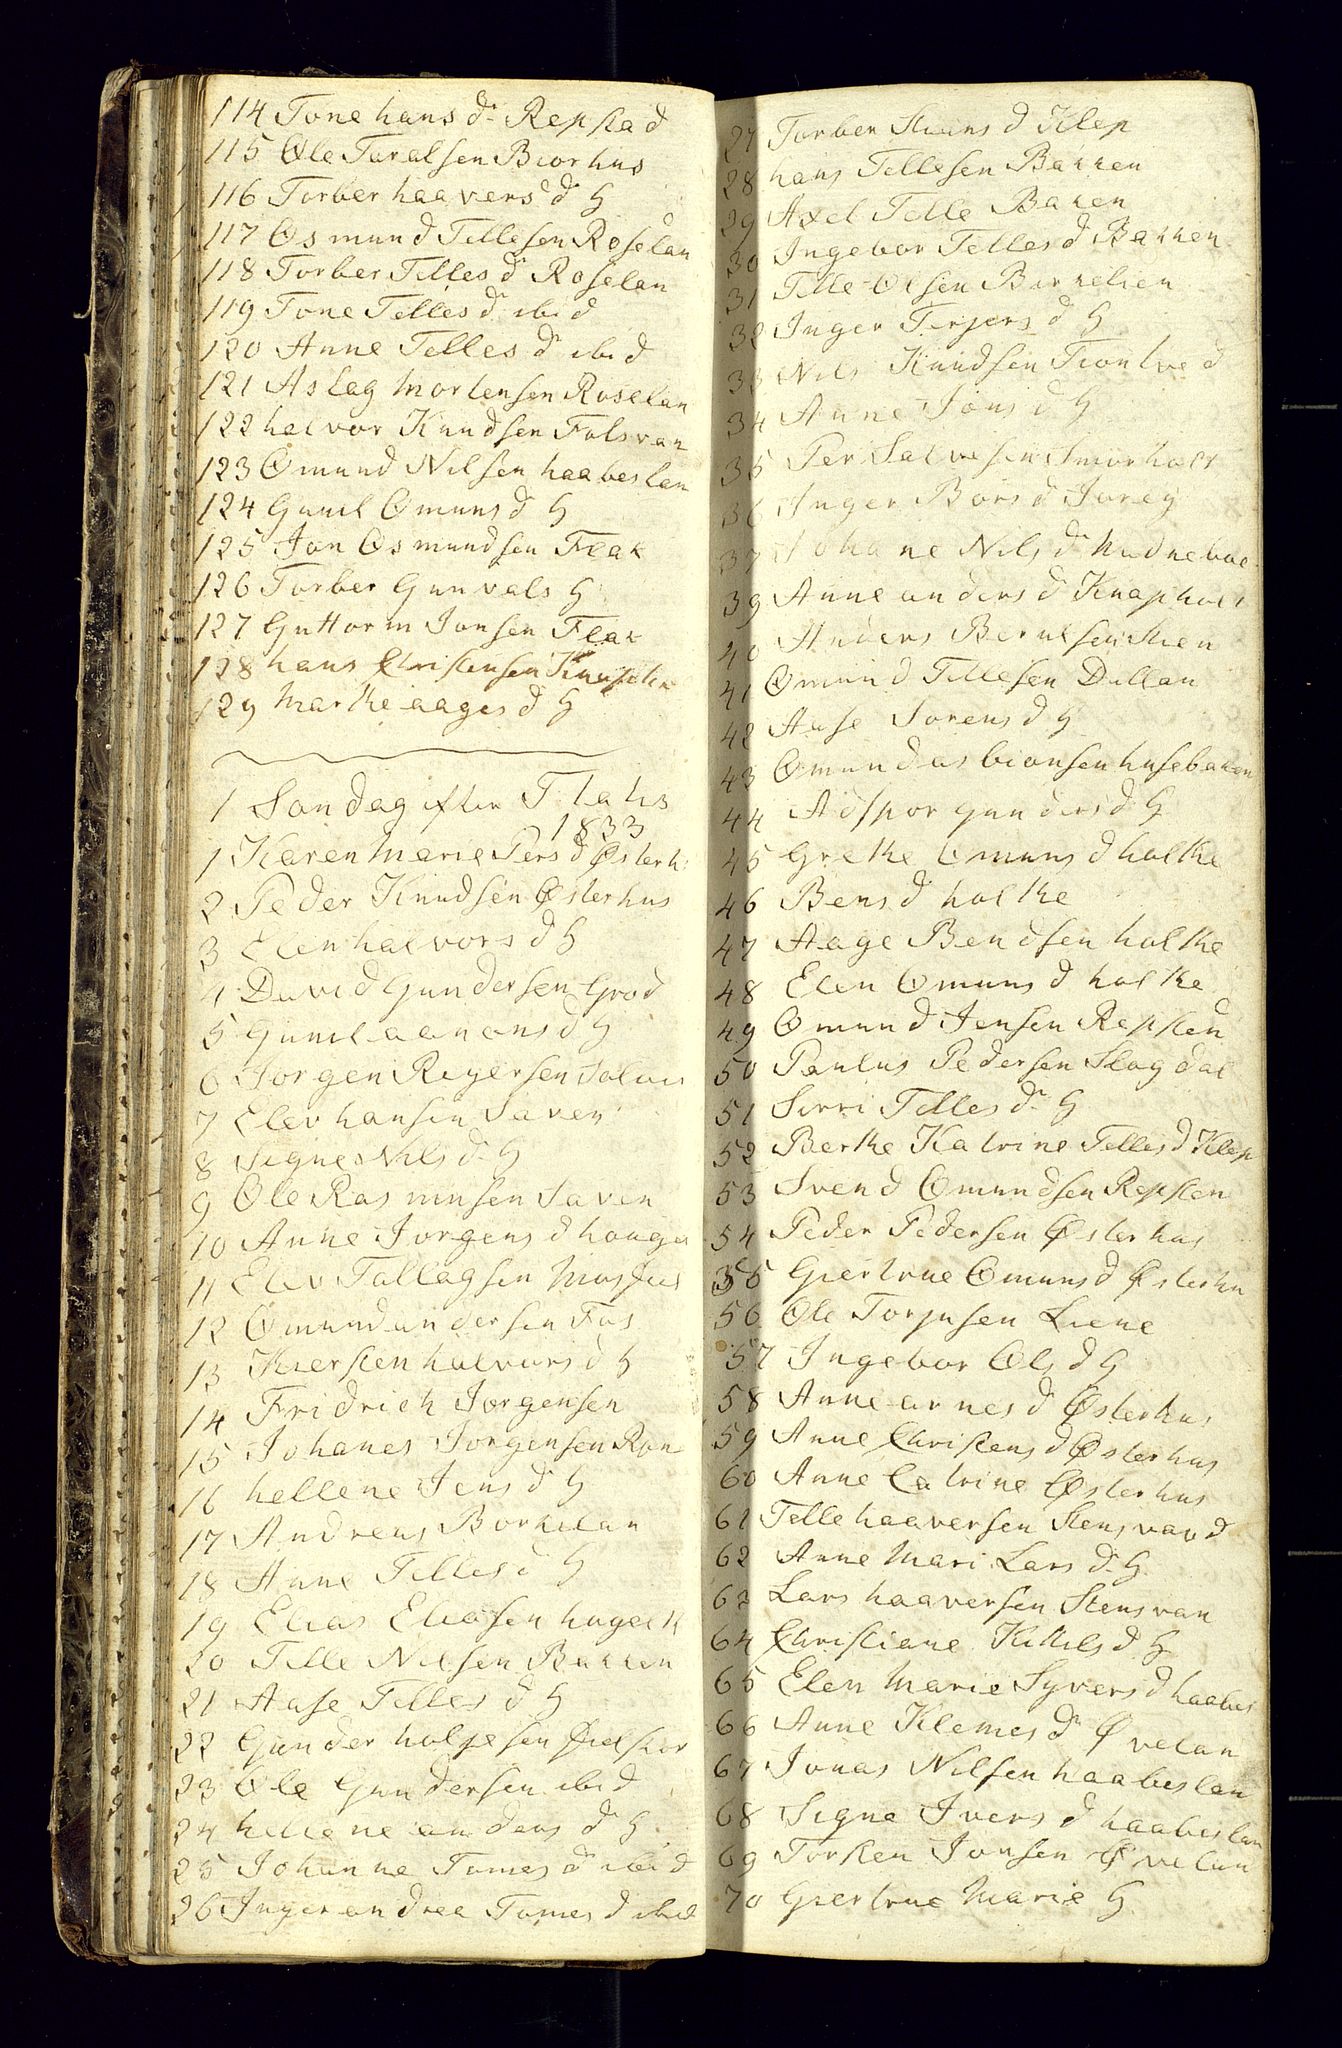 114 Tone hans d. Repstad
115 Ole Taralsen Biorhus
116 Torber haavers d. H
117 Osmund Tellesen Roselan
118 Torber Telles d. Roselan
119 Tone Telles d. ibid
120 Anne Telles d. ibid
121 Aslag Mortensen Roselan
122 halvor Knudsen Folsvan
123 Omund Nilsen haabeslan
124 Gunil Omuns d H
125 Jon Osmundsen Flak
126 Torber Gunvals H
127 Guttorm Jonsen Flak
128 hans Christensen
129 Marthe aages d H
1 Sondag efter
1833
1 Karen Marie Pers d Østerh
2 Peder Knudsen Østerhus
3 Elen halvors d H
4 David Gundersen Grod
5 Gunil aanons d H
6 Jorgen Reyersen
7 Elev hansen Saven
8 Signe Nils d. H
9 Ole Rasmusen Saven
10 Anne Jorgens d houge
11 Elev Tallagsen
12 Omund andersen Fos
13 Kiersten halvors d H
14 Fridrich Jorgensen
15 Johanes Jorgensen
16 hellene Jens d. H
17 Andreas Borkelan
18 Anne Telles d H
19 Elias Eliasen
20 Telle Nilsen Bakken
21 Aase Telles d H
22 Gunder holjesen
23 Ole Gundersen ibid
24 hellene anders d. H
25 Johanne Tomes d. ibid
26 Inger andrea Tomes d ibid
27 Torber Stians d Klep
28 hans Tellesen Bakken
29 Axel Telle Baken
30 Ingebor Telles d Bakken
31 Telle Olsen Birkelien
32 Inger Terjers d H
33 Nils Knudsen
34 Anne Jons d H
35 Per Salvesen
36 Inger Bors d
37 Johane Nils d.
39 Anne anders d Knapholt
40 Anders Berntsen Stien
41 Omund Tellesen Dullan
42 Aase Sorens d H
43 Omund asbionsen husebaken
44 Adspor gunders d. H
45 Grethe Omuns d holthe
46 Bens d holthe
47 Aage Bendsen holthe
48 Elen Omuns d holthe
49 Omund Jensen Repsted
50 Paulus Pedersen Slogdal
51 Sirri Telles d. H
52 Berthe Katrine Telles d Klep
53 Svend Omundsen Repsten
54 Peder Pedersen Østerhus
55 Giertrue Omuns d Østerhu
56 Ole Torjusen Liene
57 Ingebor Ols d H
58 Anne arnes d Østerhus
59 Anne Christens d Østerhus
60 Anne Catrine Østerhus
61 Telle haaversen Stensvand
62 Anne Mari Lars d. H
63 Lars haaversen Stensvan
64 Christiane Kittils d H
65 Elen Marie Syvers d haabes
66 Anne Klemes d. Øvelan
67 Jonas Nilsen haabeslan
68 Signe Ivers d haabeslan
69 Torsten Jonsen Øvelan
70 Giertrue Marie H